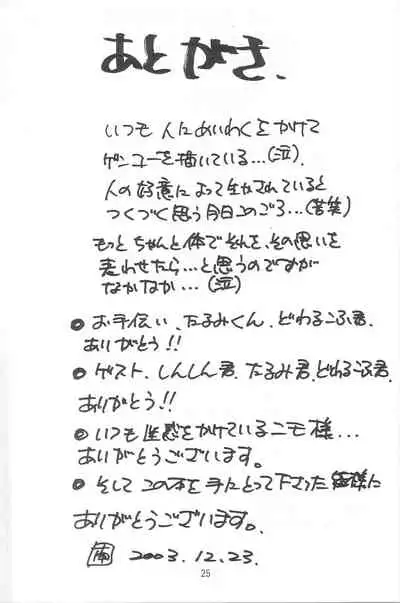 あとがき、
いつも 人にめいわくをかけて
ゲンコーを描いている…(泣)、
人の好意によって生かされていると
つくづく思う今日このごろ…(苦笑)
もっと ちゃんと体でそれを、その思いを
表わせたら…と思うのですが
なかなか…(泣)
●お手伝い、たるみくん、どわるこふ君、
ありがとう!!
●ゲスト、しんしん君、たるみ君、どわるこふ君、
ありがとう!!
●いつも をかけているニモ様…
ありがとうございます。
●そして この本を手にとって下さった 皆様に
ありがとうございます。
2003.12.23.
25